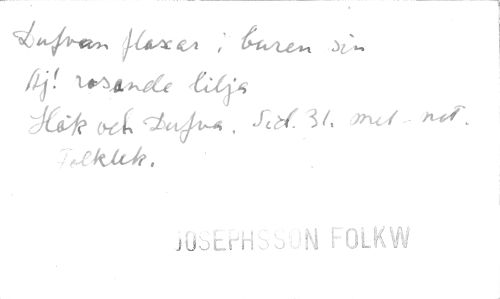 Dufvan flaxar i buren sin
Aj! rosande lilja
Hök och Dufva. Sid. 31. mel. not.
Folklek.
JOSEPHSSON FOLKW